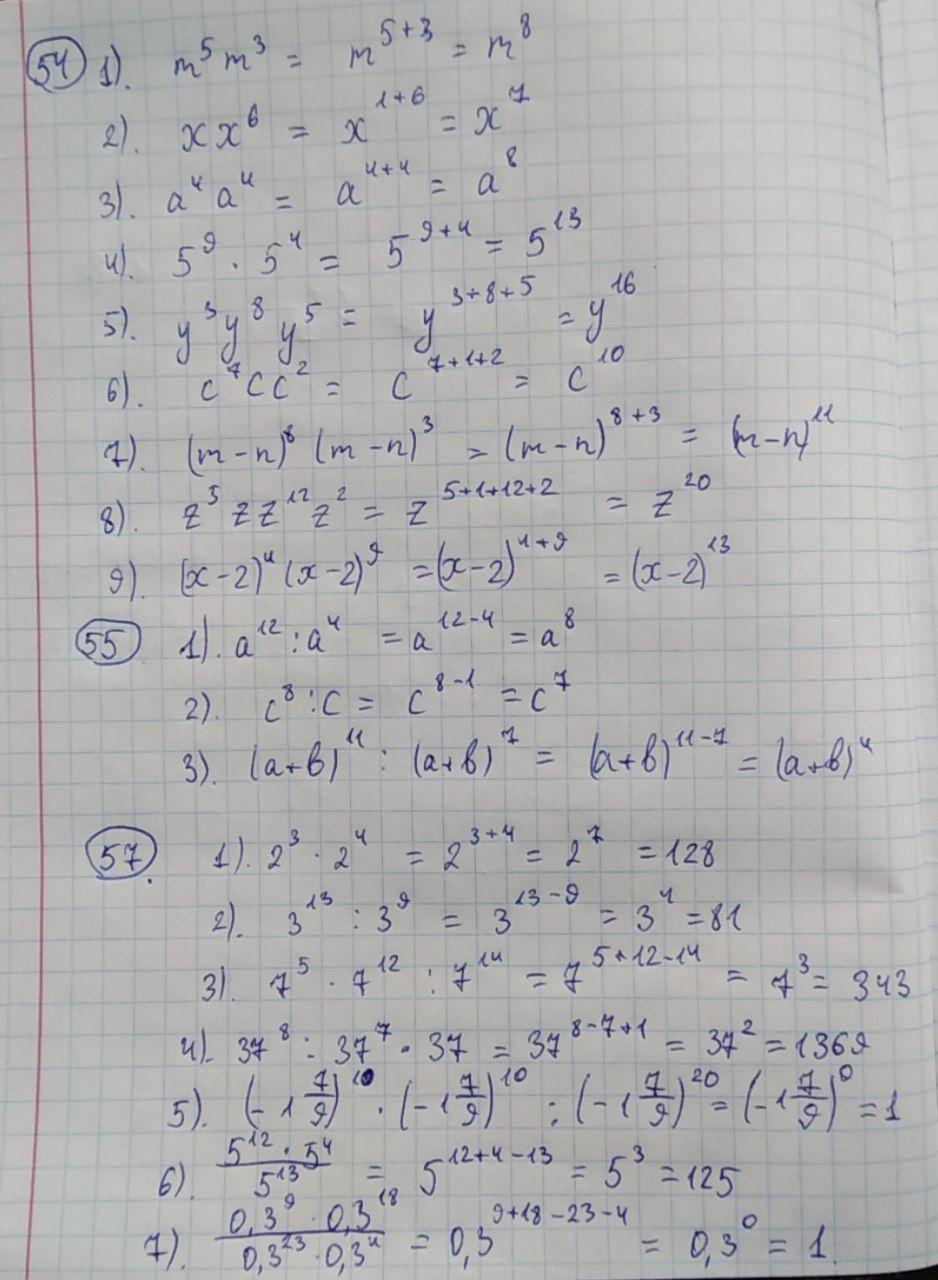 54 1). m⁵m³ = m⁵⁺³ = m⁸
2). x x⁶ = x¹⁺⁶ = x⁷
3). a⁴a⁴ = a⁴⁺⁴ = a⁸
4). 5⁹ · 5⁴ = 5⁹⁺⁴ = 5¹³
5). y³y⁸y⁵ = y³⁺⁸⁺⁵ = y¹⁶
6). c⁷cc² = c⁷⁺¹⁺² = c¹⁰
7). (m-n)⁸ (m-n)³ = (m-n)⁸⁺³ = (m-n)¹¹
8). z⁵zz¹²z² = z⁵⁺¹⁺¹²⁺² = z²⁰
9). (x-2)⁴(x-2)⁹ = (x-2)⁴⁺⁹ = (x-2)¹³
55 1). a¹² : a⁴ = a¹²⁻⁴ = a⁸
2). c⁸ : c = c⁸⁻¹ = c⁷
3). (a+b)¹¹ : (a+b)⁷ = (a+b)¹¹⁻⁷ = (a+b)⁴
57. 1). 2³ · 2⁴ = 2³⁺⁴ = 2⁷ = 128
2). 3¹³ : 3⁹ = 3¹³⁻⁹ = 3⁴ = 81
3). 7⁵ · 7¹² : 7¹⁴ = 7⁵⁺¹²⁻¹⁴ = 7³ = 343
4). 37⁸ : 37⁷ · 37 = 37⁸⁻⁷⁺¹ = 37² = 1369
5). (-1 7/9)¹⁰ · (-1 7/9)¹⁰ : (-1 7/9)²⁰ = (-1 7/9)⁰ = 1
6). 5¹² · 5⁴ / 5¹³ = 5¹²⁺⁴⁻¹³ = 5³ = 125
7). 0,3⁹ · 0,3¹⁸ / 0,3²³ · 0,3⁴ = 0,3⁹⁺¹⁸⁻²³⁻⁴ = 0,3⁰ = 1